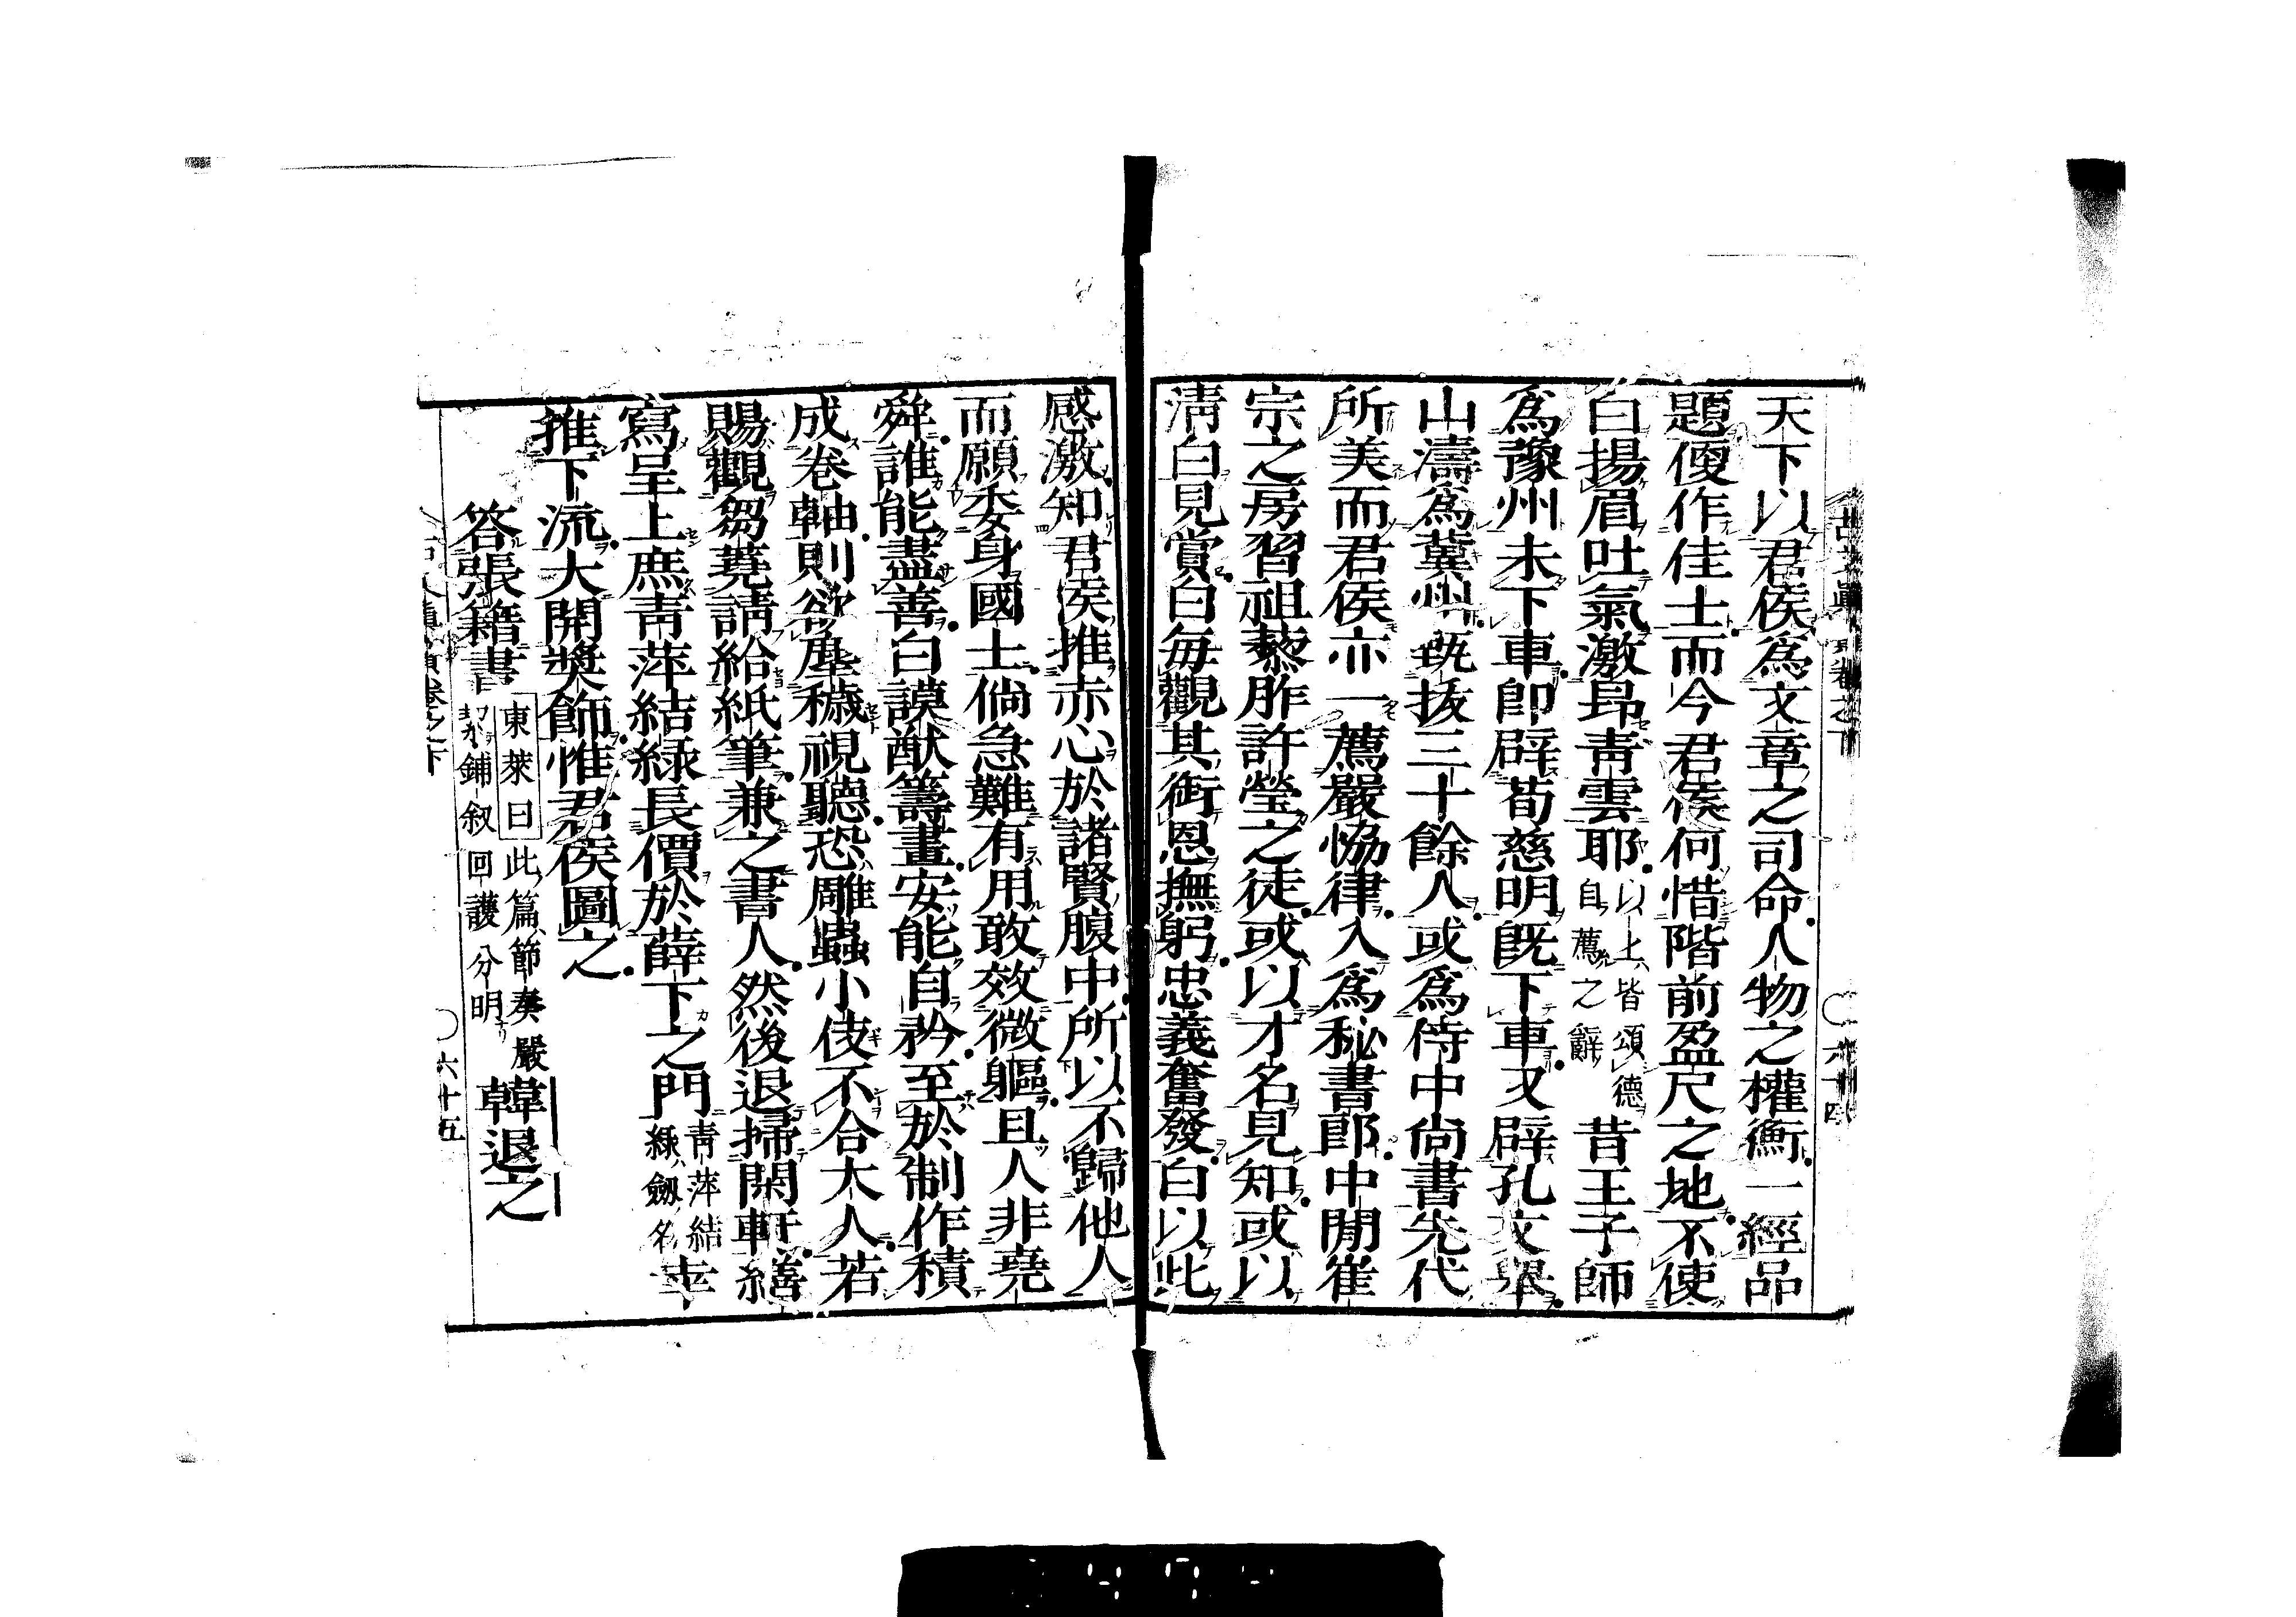 天下以君侯爲文章之司命人物之權衡一經品
題便作佳士而今君侯何惜階前盈尺之地不使
白揚眉吐氣激昂靑雲耶以上皆頌德自薦之辭昔王子師
爲豫州未下車卽辟荀慈明旣下車又辟孔文舉
山濤爲冀州甄拔三十餘人或爲侍中尙書先代
所美而君侯亦一薦嚴恊律入爲秘書郎中閒崔
宗之房習祖藜胙許瑩之徒或以才名見知或以
淸白見賞白每觀其銜恩撫躬忠義奮發白以此
感激知君侯推赤心於諸賢腹中所以不歸他人
而願委身國士倘急難有用敢效微軀且人非堯
舜誰能盡善白謨猷籌畫安能自矜至於制作積
成卷軸則欲塵穢視聽恐雕蟲小伎不合大人若
賜觀芻蕘請給紙筆兼之書人然後退掃閑軒繕
寫呈上庶靑萍結綠長價於薛下之門靑萍結綠劔名幸
推下流大開奬飾惟君侯圖之
答張籍書 東萊曰此篇節奏嚴緊鋪叙回護分明 韓退之
卷之下 六十五